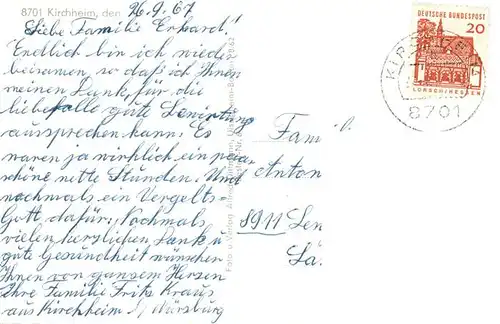 8701 Kirchheim, den 26.9.67
Liebe Familie Erhard!
Endlich bin ich wieder
beisamen, so daß ich Ihnen
meinen Dank, für die
liebe gute
aussprechen kann. Es
waren ja wirklich ein paar
schöne nette Stunden. Und
nochmals ein Vergelts-
Gott dafür. Nochmals
vielen herzlichen Dank u.
gute Gesundheit wünschen
Ihnen von ganzem Herzen
Ihre Familie Fritz Kraus
aus Kirchheim b/ Würzburg
Foto u. Verlag
DEUTSCHE BUNDESPOST
20
LORSCH/HESSEN
8701
Fam
Anton
8911